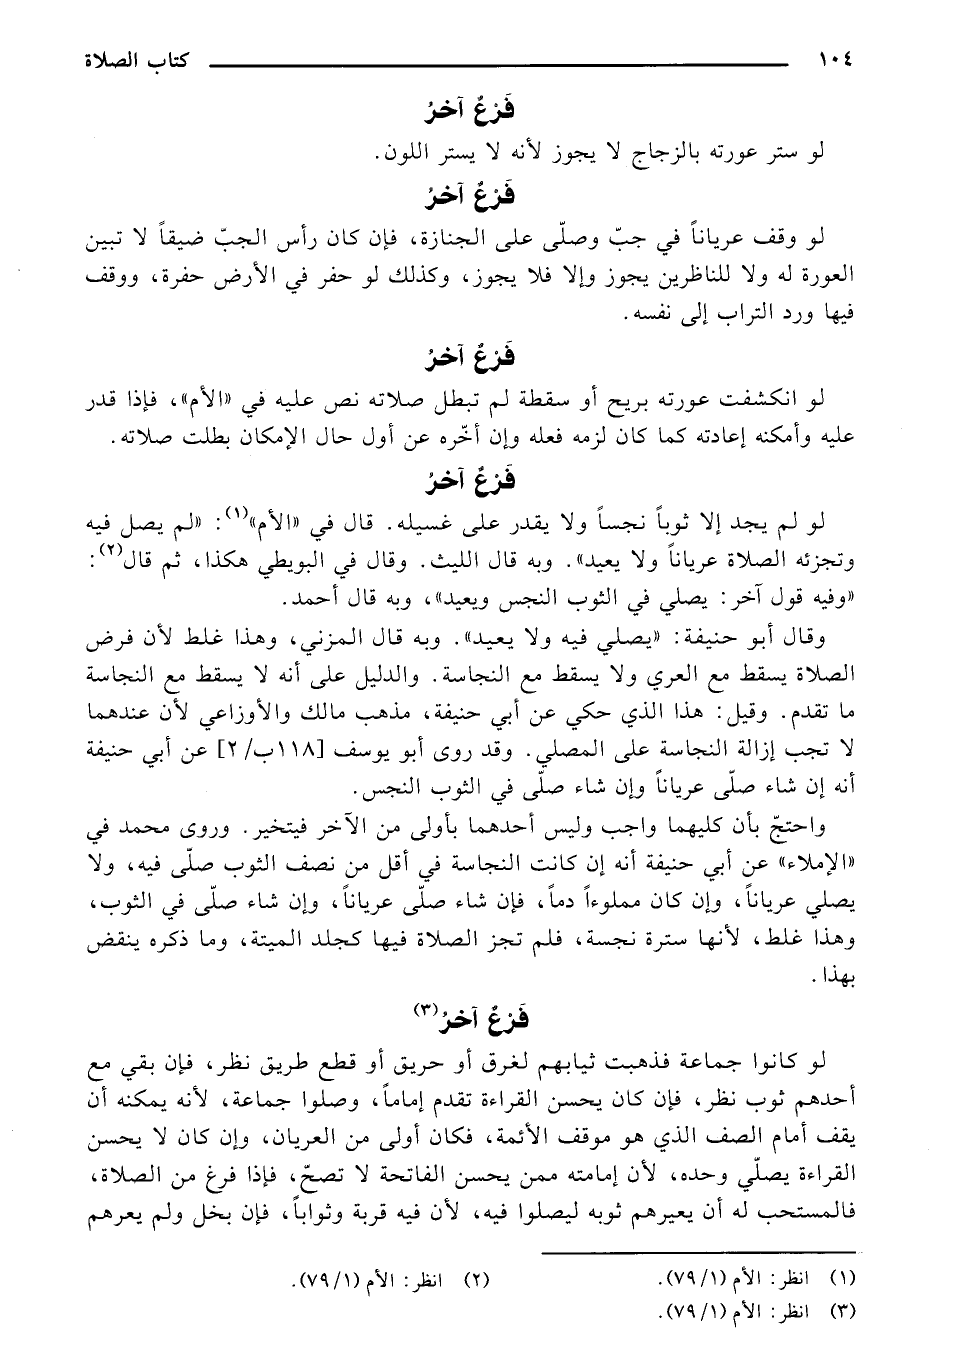 ١٠٤ كتاب الصلاة
فَرْعٌ آخرُ
لو ستر عورته بالزجاج لا يجوز لأنه لا يستر اللون.
فَرْعٌ آخرُ
لو وقف عرياناً في جبّ وصلّى على الجنازة، فإن كان رأس الجبّ ضيقاً لا تبين
العورة له ولا للناظرين يجوز وإلا فلا يجوز، وكذلك لو حفر في الأرض حفرة، ووقف
فيها ورد التراب إلى نفسه.
فَرْعٌ آخرُ
لو انكشفت عورته بريح أو سقطة لم تبطل صلاته نص عليه في «الأم»، فإذا قدر
عليه وأمكنه إعادته كما كان لزمه فعله وإن أخّره عن أول حال الإمكان بطلت صلاته.
فَرْعٌ آخرُ
لو لم يجد إلا ثوباً نجساً ولا يقدر على غسيله. قال في «الأم»(١): «لم يصل فيه
وتجزئه الصلاة عرياناً ولا يعيد». وبه قال الليث. وقال في البويطي هكذا، ثم قال(٢):
«وفيه قول آخر: يصلي في الثوب النجس ويعيد»، وبه قال أحمد.
وقال أبو حنيفة: «يصلي فيه ولا يعيد». وبه قال المزني، وهذا غلط لأن فرض
الصلاة يسقط مع العري ولا يسقط مع النجاسة. والدليل على أنه لا يسقط مع النجاسة
ما تقدم. وقيل: هذا الذي حكي عن أبي حنيفة، مذهب مالك والأوزاعي لأن عندهما
لا تجب إزالة النجاسة على المصلي. وقد روى أبو يوسف [١١٨ب/ ٢] عن أبي حنيفة
أنه إن شاء صلّى عرياناً وإن شاء صلّى في الثوب النجس.
واحتجّ بأن كليهما واجب وليس أحدهما بأولى من الآخر فيتخير. وروى محمد في
«الإملاء» عن أبي حنيفة أنه إن كانت النجاسة في أقل من نصف الثوب صلّى فيه، ولا
يصلي عرياناً، وإن كان مملوءاً دماً، فإن شاء صلّى عرياناً، وإن شاء صلّى في الثوب،
وهذا غلط، لأنها سترة نجسة، فلم تجز الصلاة فيها كجلد الميتة، وما ذكره ينقض
بهذا.
فَرْعٌ آخرُ(٣)
لو كانوا جماعة فذهبت ثيابهم لغرق أو حريق أو قطع طريق نظر، فإن بقي مع
أحدهم ثوب نظر، فإن كان يحسن القراءة تقدم إماماً، وصلوا جماعة، لأنه يمكنه أن
يقف أمام الصف الذي هو موقف الأئمة، فكان أولى من العريان، وإن كان لا يحسن
القراءة يصلّي وحده، لأن إمامته ممن يحسن الفاتحة لا تصحّ، فإذا فرغ من الصلاة،
فالمستحب له أن يعيرهم ثوبه ليصلوا فيه، لأن فيه قربة وثواباً، فإن بخل ولم يعرهم
(١) انظر: الأم (١/ ٧٩). (٢) انظر: الأم (١/ ٧٩).
(٣) انظر: الأم (١/ ٧٩).